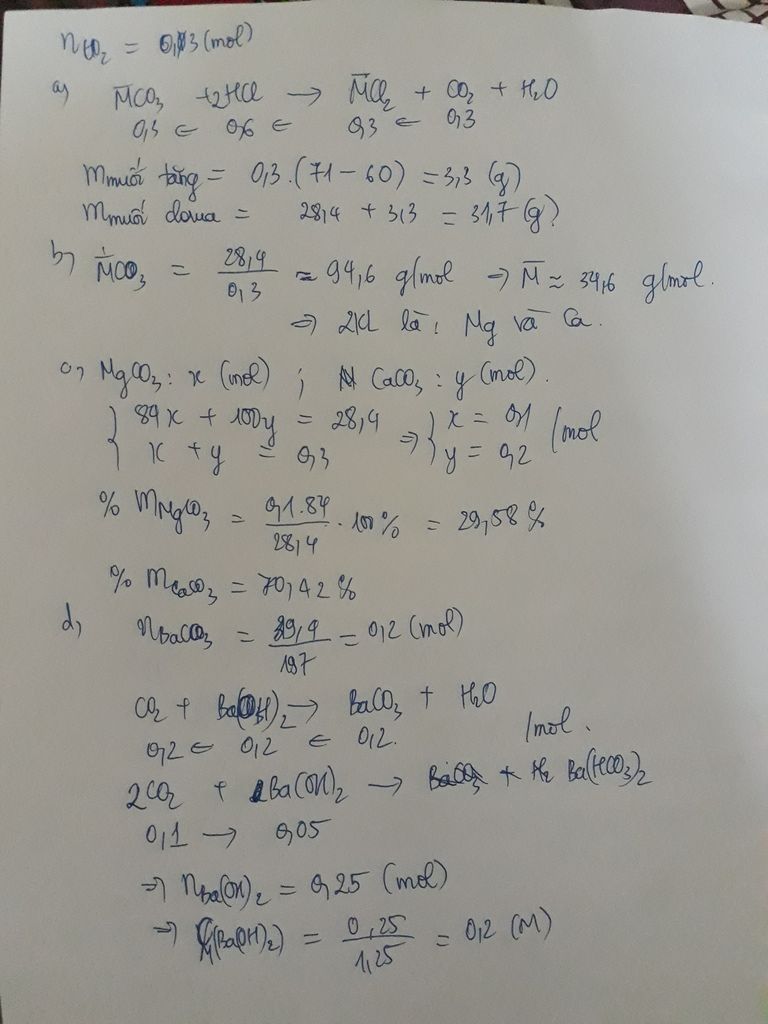 nCO2 = 0,3 (mol)
a) M̄CO3 + 2HCl → M̄Cl2 + CO2 + H2O
0,3 ← 0,6 ← 0,3 ← 0,3
mmuối tăng = 0,3.(71 - 60) = 3,3 (g)
mmuối clorua = 28,4 + 3,3 = 31,7 (g)
b) M̄CO3 = 28,4/0,3 ≈ 94,6 g/mol → M̄ ≈ 34,6 g/mol.
⇒ 2KL là: Mg và Ca.
c) MgCO3: x (mol) ; CaCO3: y (mol).
{ 84x + 100y = 28,4 ⇒ { x = 0,1
x + y = 0,3 y = 0,2 /mol
% mMgCO3 = 0,1.84/28,4 . 100% = 29,58%
% mCaCO3 = 70,42%
d) nBaCO3 = 39,4/197 = 0,2 (mol)
CO2 + Ba(OH)2 → BaCO3 + H2O
0,2 ← 0,2 ← 0,2. /mol.
2CO2 + Ba(OH)2 → Ba(HCO3)2
0,1 → 0,05
⇒ nBa(OH)2 = 0,25 (mol)
⇒ CM(Ba(OH)2) = 0,25/1,25 = 0,2 (M)